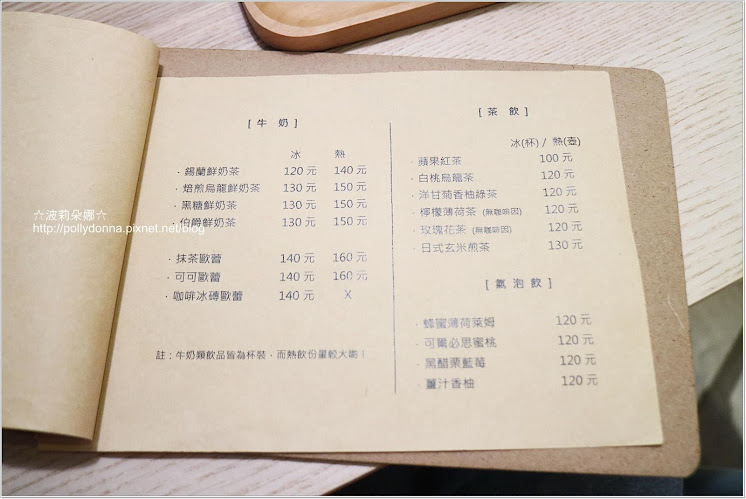 [ 牛 奶 ]
冰 熱
· 錫蘭鮮奶茶 120 元 140 元
· 焙煎烏龍鮮奶茶 130 元 150 元
· 黑糖鮮奶茶 130 元 150 元
· 伯爵鮮奶茶 130 元 150 元
· 抹茶歐蕾 140 元 160 元
· 可可歐蕾 140 元 160 元
· 咖啡冰磚歐蕾 140 元 X
註：牛奶類飲品皆為杯裝，而熱飲份量較大喲！
[ 茶 飲 ]
冰(杯) / 熱(壺)
· 蘋果紅茶 100 元
· 白桃烏龍茶 120 元
· 洋甘菊香柚綠茶 120 元
· 檸檬薄荷茶 (無咖啡因) 120 元
· 玫瑰花茶 (無咖啡因) 120 元
· 日式玄米煎茶 130 元
[ 氣 泡 飲 ]
· 蜂蜜薄荷萊姆 120 元
· 可爾必思蜜桃 120 元
· 黑醋栗藍莓 120 元
· 薑汁香柚 120 元
☆波莉朵娜☆
http://pollydonna.pixnet.net/blog